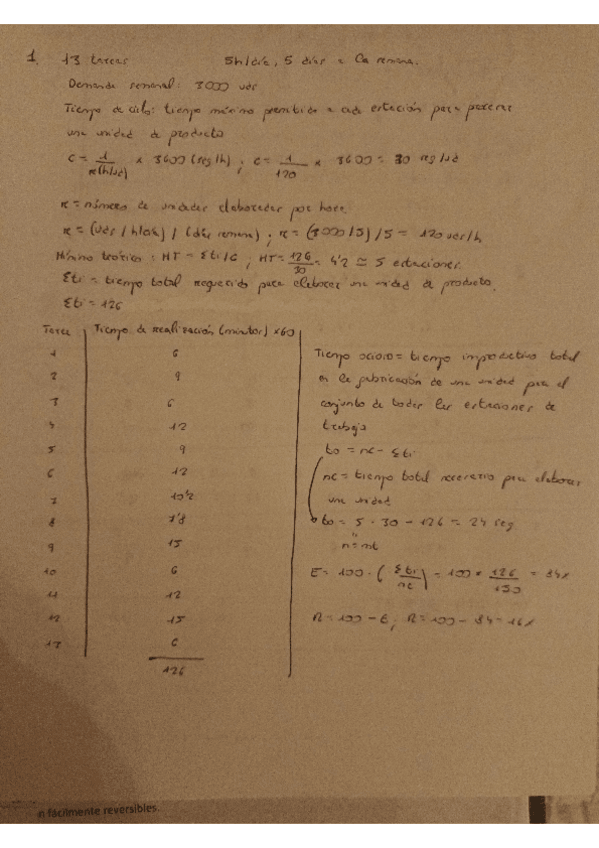 1. 13 tareas 5h/día, 5 días a la semana.
Demanda semanal: 3000 uds
Tiempo de ciclo: tiempo máximo permitido a cada estación para procesar
una unidad de producto
C = 1/r(h/ud) x 3600 (seg/h); C = 1/120 x 3600 = 30 seg/ud
r = número de unidades elaboradas por hora.
r = (uds / hlab) / (días semana); r = (3000/5) / 5 = 120 uds/h
Mínimo teórico: MT = Σti/C; MT = 126/30 = 4'2 ≃ 5 estaciones.
Σti = tiempo total requerido para elaborar una unidad de producto.
Σti = 126
Tarea Tiempo de realización (minutos) x60
1 6
2 9
3 6
4 12
5 9
6 12
7 10'2
8 7'8
9 15
10 6
11 12
12 15
13 6
126
Tiempo ocioso = tiempo improductivo total
en la fabricación de una unidad para el
conjunto de todas las estaciones de
trabajo
to = nc - Σti
nc = tiempo total necesario para elaborar
una unidad
to = 5 · 30 - 126 = 24 seg
n = mt
E = 100 · (Σti/nc) = 100 · 126/150 = 84%
R = 100 - E; R = 100 - 84 = 16%
n fácilmente reversibles.